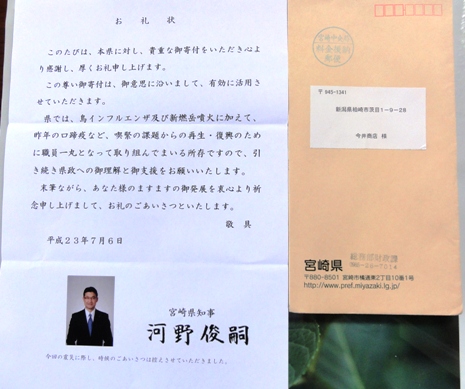 お礼状
このたびは、本県に対し、貴重な御寄付をいただき心よ
り感謝し、厚くお礼申し上げます。
この尊い御寄付は、御意思に沿いまして、有効に活用さ
せていただきます。
県では、鳥インフルエンザ及び新燃岳噴火に加えて、
昨年の口蹄疫など、喫緊の課題からの再生・復興のため
に職員一丸となって取り組んでまいる所存ですので、引
き続き県政への御理解と御支援をお願いいたします。
末筆ながら、あなた様のますますの御発展を衷心より祈
念申し上げまして、お礼のごあいさつといたします。
敬具
平成23年7月6日
宮崎県知事
河野俊嗣
今回の震災に際し、時候のごあいさつは控えさせていただきました。
料金後納
郵便
〒945-1341
新潟県柏崎市茨目1-9-28
今井商店 様
総務部財政課
宮崎県
〒880-8501 宮崎市橘通東2丁目10番1号
http://www.pref.miyazaki.lg.jp/